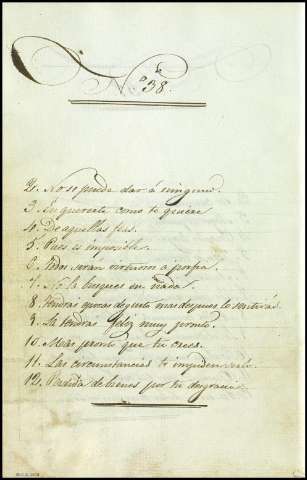 N.º 38.
2. No se puede dar á ninguno.
3. Inquierete como te quiere
4. De aquellas fue.
5. Pues es imposible.
6. Todos serán virtuosos á porfia.
7. No la busques en nada.
8. Tendras ejoras de gusto mas despues lo sentirás.
9. La tendras feliz muy pronto.
10. Mas pronto que tu crees.
11. Las circunstancias te impiden serlo.
12. Perdida de bienes por tu desgracia.